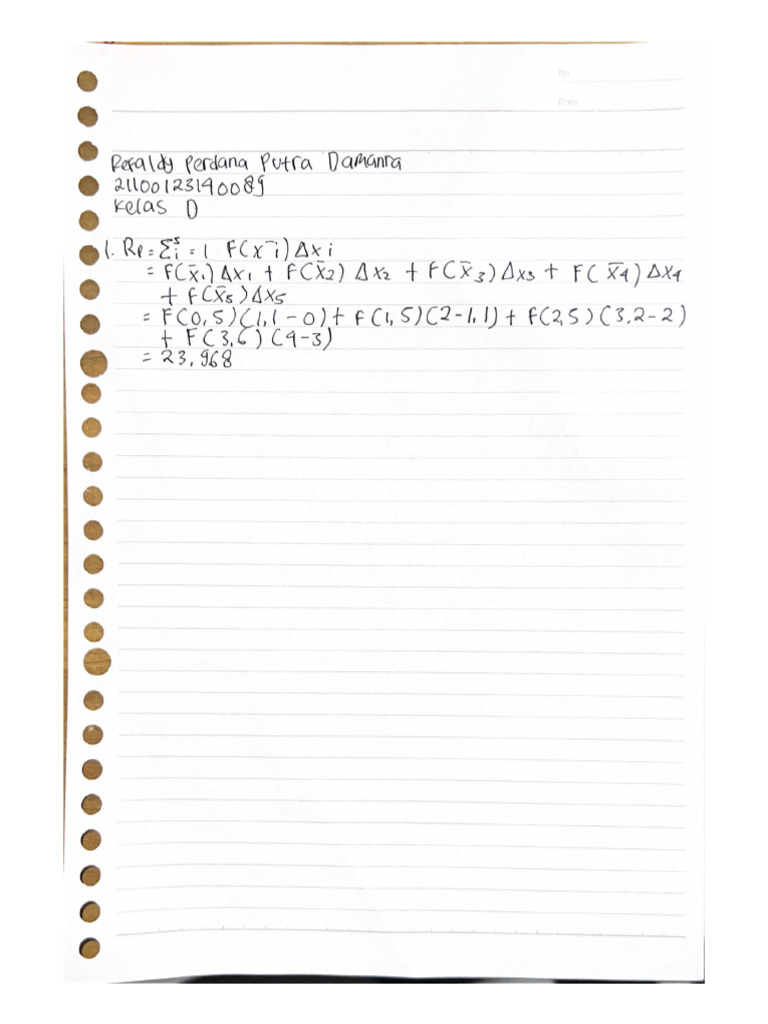 No
Date
Refaldy Perdana Putra Damanra
21100123140089
Kelas D
1. Rp = Σ⁵ᵢ = 1 F(x̄i) Δxi
= F(x̄1) Δx1 + F(x̄2) Δx2 + F(x̄3) Δx3 + F(x̄4) Δx4
+ F(x̄5) Δx5
= F(0,5) (1,1-0) + F(1,5) (2-1,1) + F(2,5) (3,2-2)
+ F(3,6) (4-3)
= 23,968